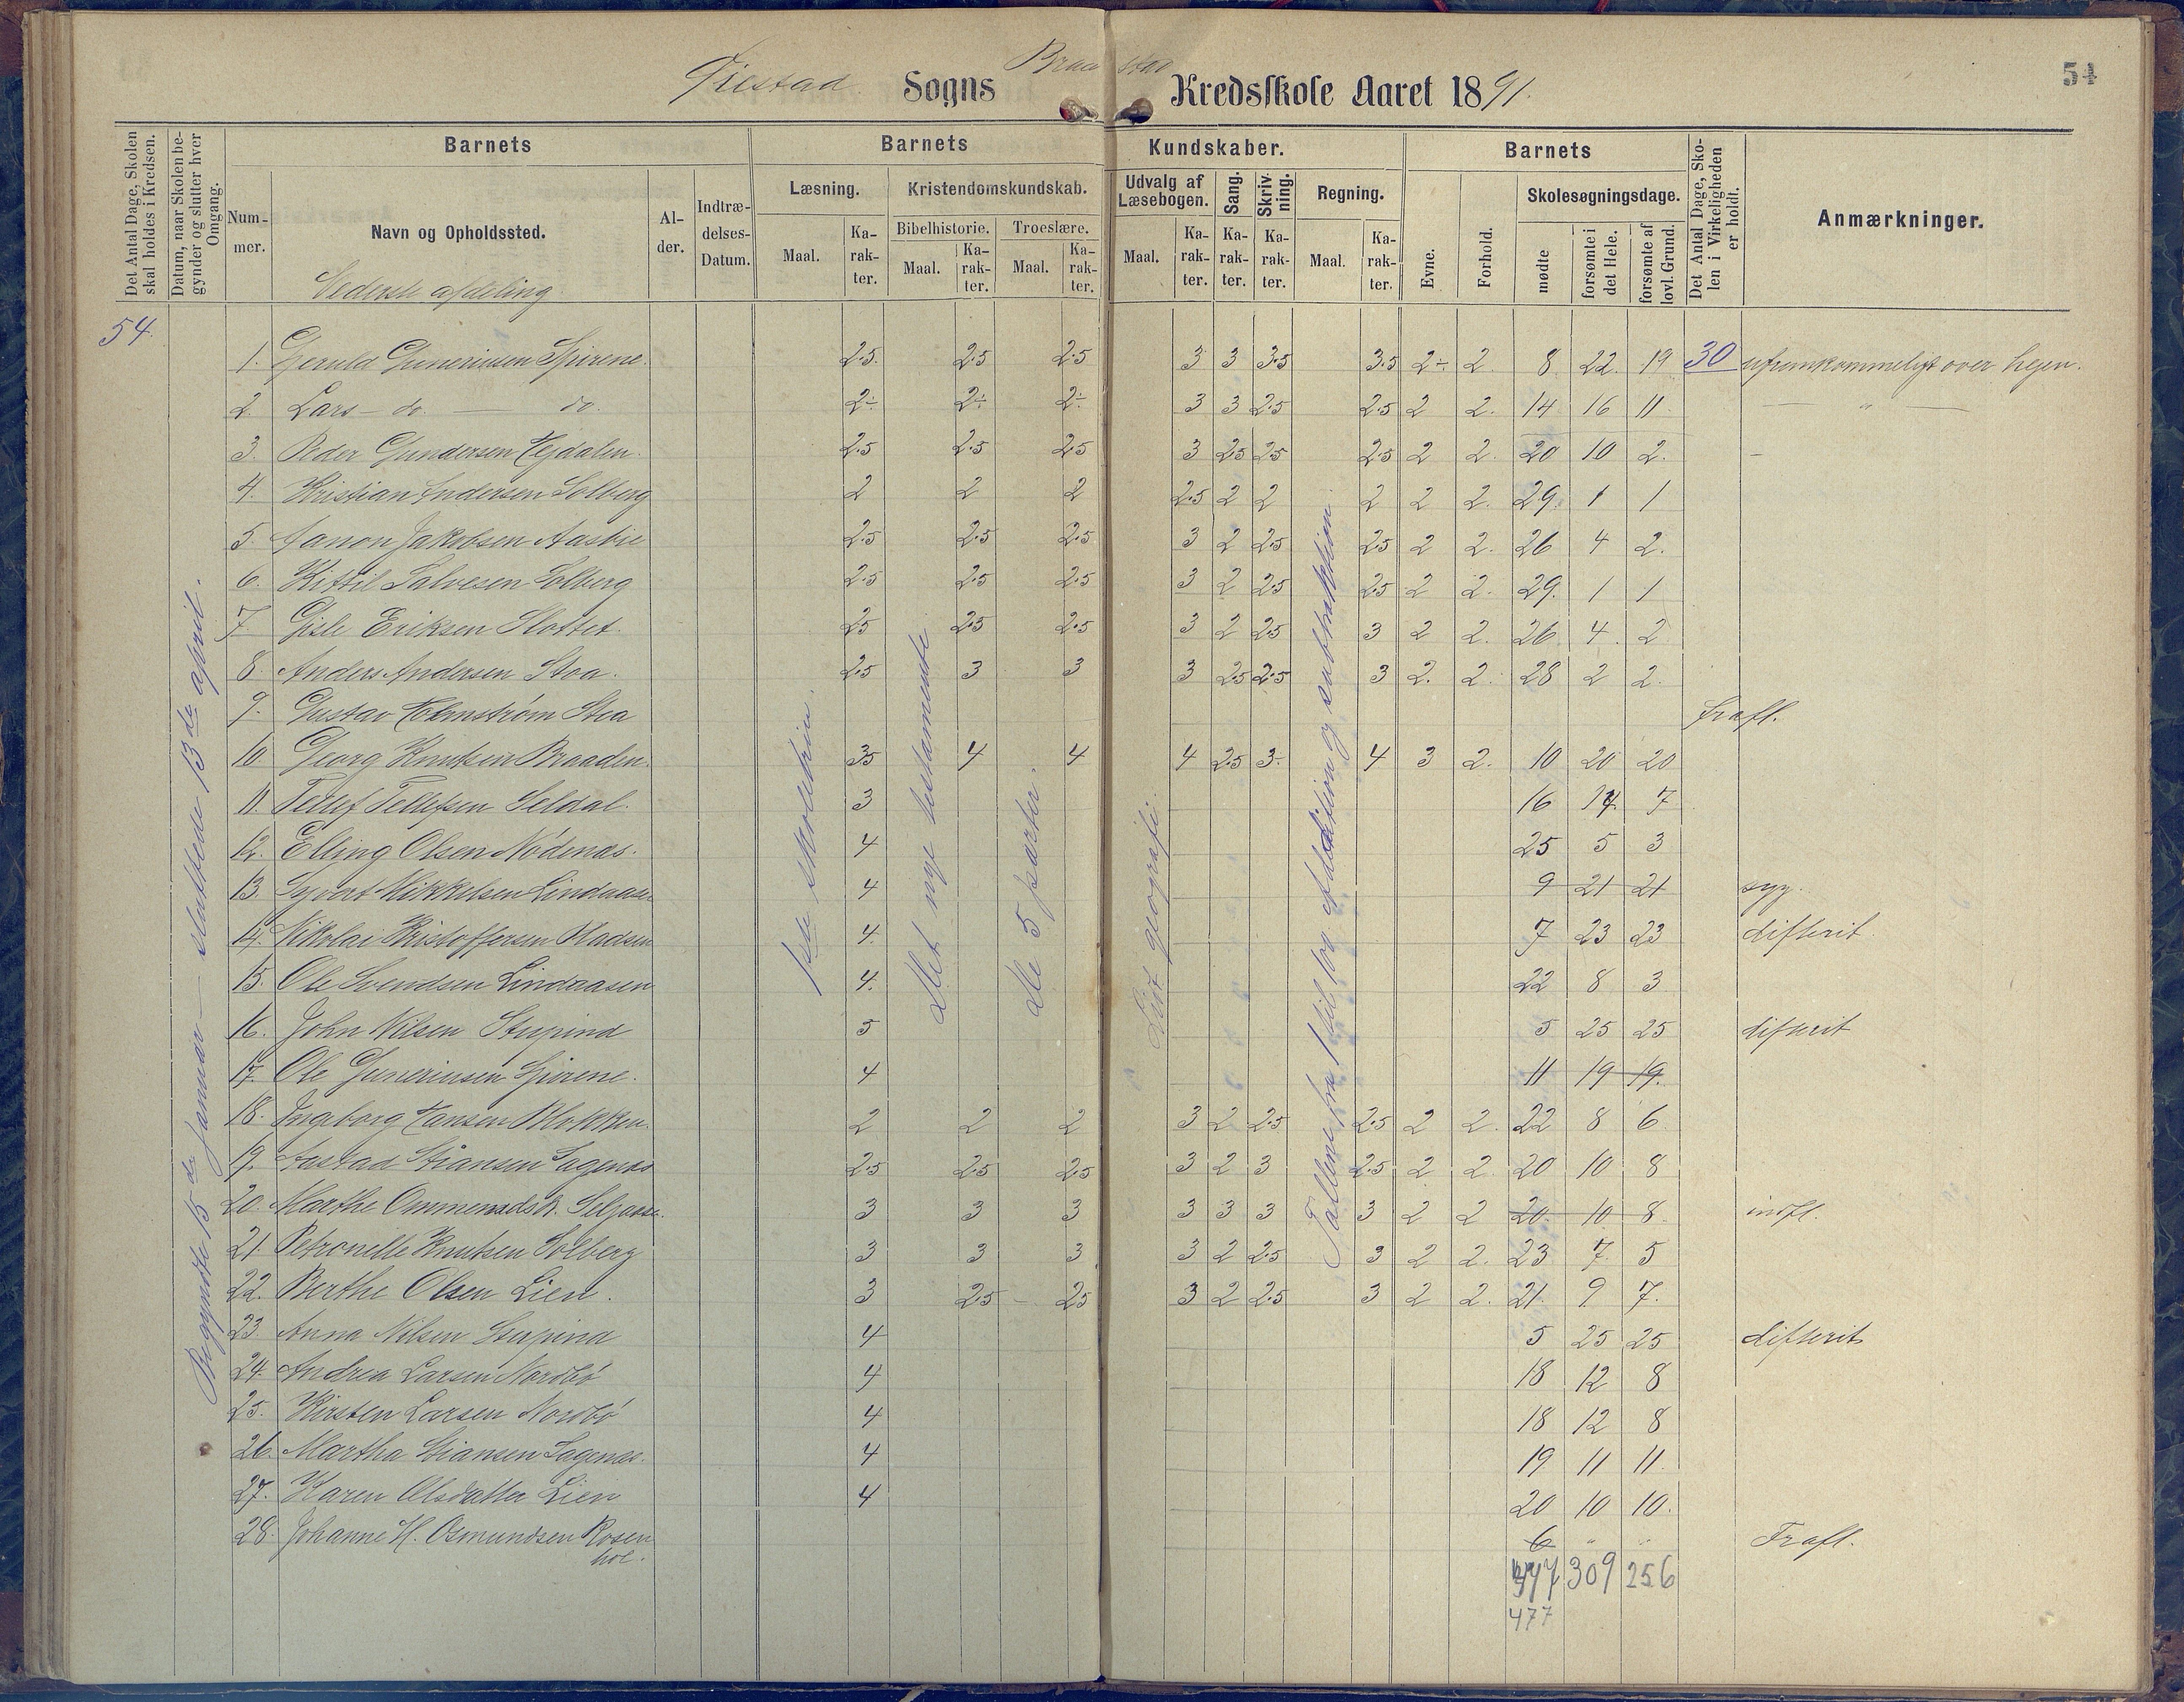 54
Sogns
Kredsskole Aaret 1891.
Det Antal Dage, Skolen skal holdes i Kredsen.
Datum, naar Skolen begynder og slutter hver Omgang.
Barnets
Barnets
Kundskaber.
Barnets
Det Antal Dage, Skolen i Virkeligheden er holdt.
Anmærkninger.
Nummer.
Navn og Opholdssted.
Alder.
Indtrædelses-Datum.
Læsning.
Kristendomskundskab.
Udvalg af Læsebogen.
Sang.
Skrivning.
Regning.
Evne.
Forhold.
Skolesøgningsdage.
Bibelhistorie.
Troeslære.
Maal.
Karakter.
Maal.
Karakter.
Maal.
Karakter.
Maal.
Karakter.
Karakter.
Karakter.
Maal.
Karakter.
mødte
forsømte i det Hele.
forsømte af lovl. Grund.
Nederste afdeling
54.
Begyndte 15de januar — sluttede 13de april.
1ste skoletrin.
Det nye testamente
de 5 parter.
Lidt geografi.
Tallene fra 1 til 100 af addition og subtraktion
1. Guneriusen Spirene. 2.5. 2.5 2.5 3 3 3.5 3.5 2÷ 2. 8 22. 19 30 ufremkommeligt over hejen.
2. Lars — do. — do. 2÷ 2÷ 2÷ 3 3 2.5 2.5 2 2. 14 16 11 — " —
3. Peder Gundersen Hejdalen. 2.5 2.5 2.5 3 2.5 2.5 2.5 2 2. 20 10 2. –
4. Kristian Andersen Solberg 2 2 2 2.5 2 2 2 2 2. 29. 1 1
5. Jakobsen 2.5 2.5 2.5 3 2 2.5 2.5 2 2. 26 4 2.
6. Kittil Salvesen Solberg 2.5 2.5 2.5 3 2 2.5 2.5 2 2. 29. 1 1
7. Gisle Eriksen Slottet. 2.5 2.5 2.5 3 2 2.5 3 2 2. 26 4. 2
8. Anders Andersen Stoa. 2.5 3 3 3 2.5 2.5 3 2. 2. 28 2 2.
9. Gustav Holmstrøm Stoa frafl.
10 Georg Knutsen Braaden. 3.5 4 4 4 2.5 3. 4 3 2. 10 20 20
11. Tellef Tellefsen Seldal. 3 16 14. 7
12. Elling Olsen Nødenæs. 4 25 5 3
13. Syvert Mikkelsen Lindaasen 4 9 21 21 syg.
14. Nikolai Kristoffersen Pladsen 4. 7 23 23 difterit
15. Ole Svendsen Lindaasen 4. 22 8 3
16. John Nilsen Stupind 5 5 25 25 difterit
17. Ole Guneriusen Spirene. 4 11 19 19.
18. Ingeborg Hansen Klokken. 2 2 2 3 2 2.5 2.5 2 2. 22 8 6
19. Aastad Stiansen Sagenæs 2.5 2.5 2.5 3 2 3 2.5 2 2. 20 10 8
20. Marthe 3 3 3 3 3 3 3 2 2 20. 10 8 indfl.
21. Petronelle Knutsen Solberg 3 3 3 3 2 2.5 3 2 2. 23 7 5
22. Berthe Olsen Lien. 3 2.5 – 2.5 3 2 2.5 3 2 2. 21. 9 7.
23. Anna Nilsen Stupind 4 5 25 25 difterit
24. Andrea Larsen Nordbø 4 18 12 8
25. Kirsten Larsen Nordbø 4 18 12 8
26. Martha Stiansen Sagenæs. 4 19 11 11
27. Karen Olsdatter Lien 4 20 10 10.
28. Johanne H. Osmundsen Rosen 6 " " Frafl.
hol.
309 256
477